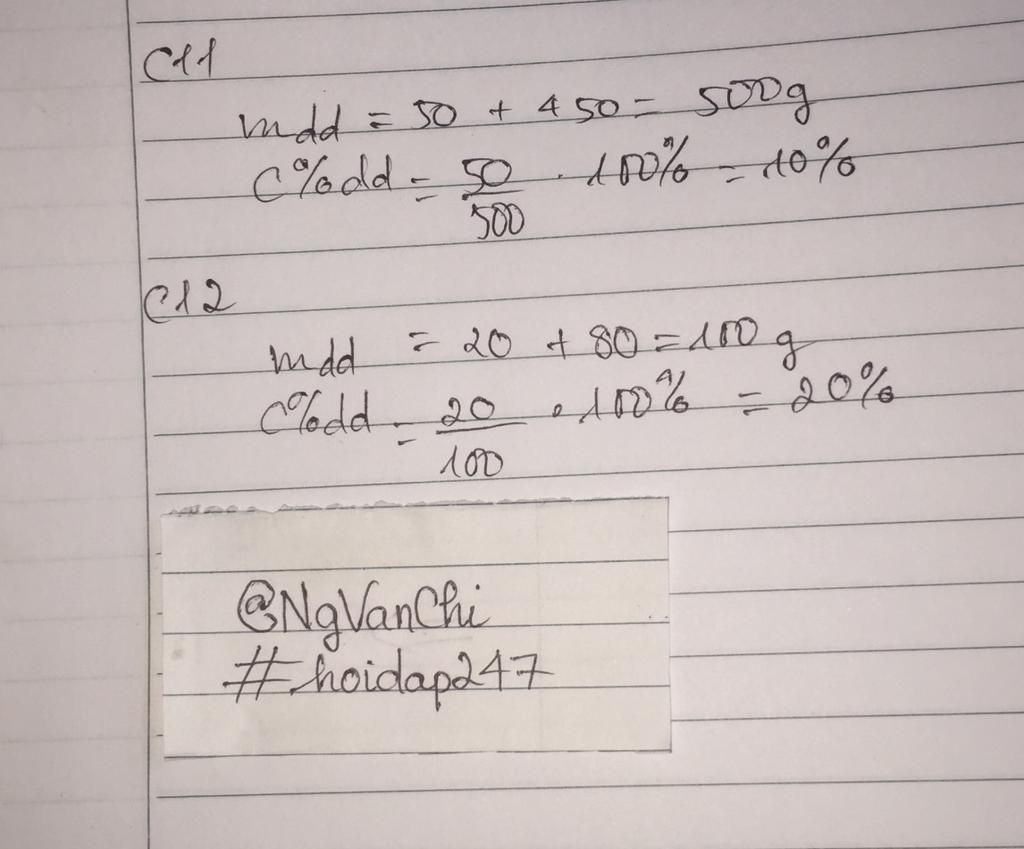 C11
mdd = 50 + 450 = 500g
C%dd = 50/500 . 100% = 10%
C12
mdd = 20 + 80 = 100 g
C%dd = 20/100 . 100% = 20%
@NgVanChi
#hoidap247